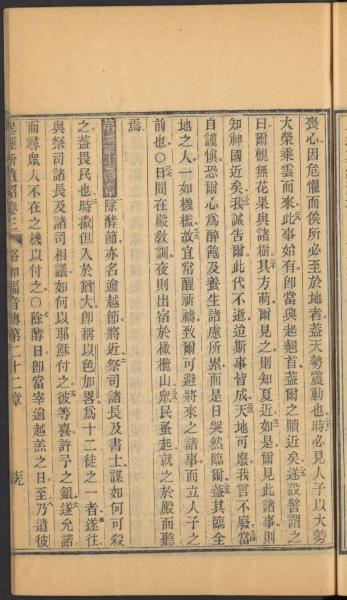 喪心因危懼而俟所必至於地者蓋天勢震動也時必見人子以大勢
大榮乘雲而來此事始有卽當興起翹首蓋爾之贖近矣遂設譬謂之
曰爾觀無花果與諸樹其方萌爾見之則知夏近如是爾見此諸事則
知神國近矣我誠告爾此代不逝迨斯事皆成天地可廢我言不廢當
自謹愼恐爾心為醉飽及養生諸慮所累而是日突然臨爾蓋其臨全
地之人一如機檻故宜常醒祈禱致爾可避將來之諸事而立人子之
前也〇日間在殿敎訓夜則出宿於橄欖山眾民蚤起就之於殿而聽
焉
除酵節亦名逾越節將近祭司諸長及書士謀如何可殺
之蓋畏民也時撒但入於猶大卽稱以色加畧為十二徒之一者遂往
與祭司諸長及諸司相議如何以耶穌付之彼等喜許予之銀遂允諾
而尋眾人不在之機以付之〇除酵日卽當宰逾越羔之日至乃遣彼
路加福音傳第二十二章